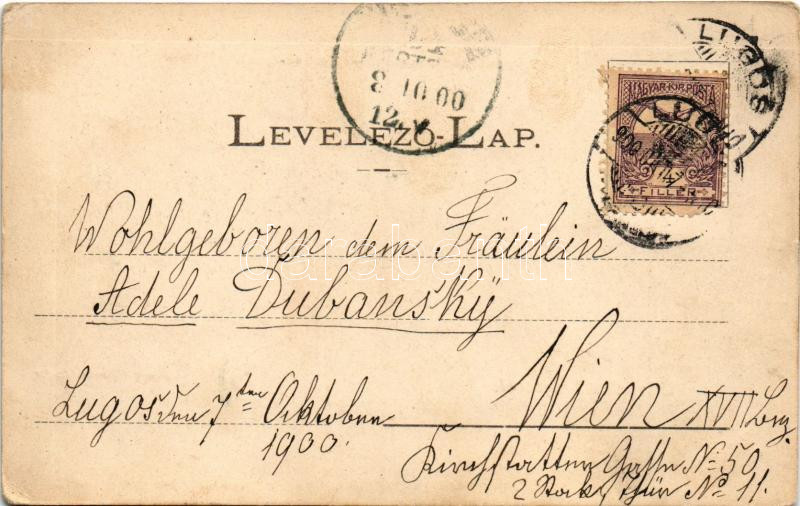 LUGOS
8 10 00
12.V
LEVELEZŐ-LAP.
MAGYAR KIR. POSTA
LUGOS
FILLÉR
Wohlgeboren dem Fräulein
Adele Dubanský
Wien XVII Bez.
Lugos den 7ten Oktober
1900.
Kirchstetterngasse No 50
2 Stock Thür No 11.
darabanth